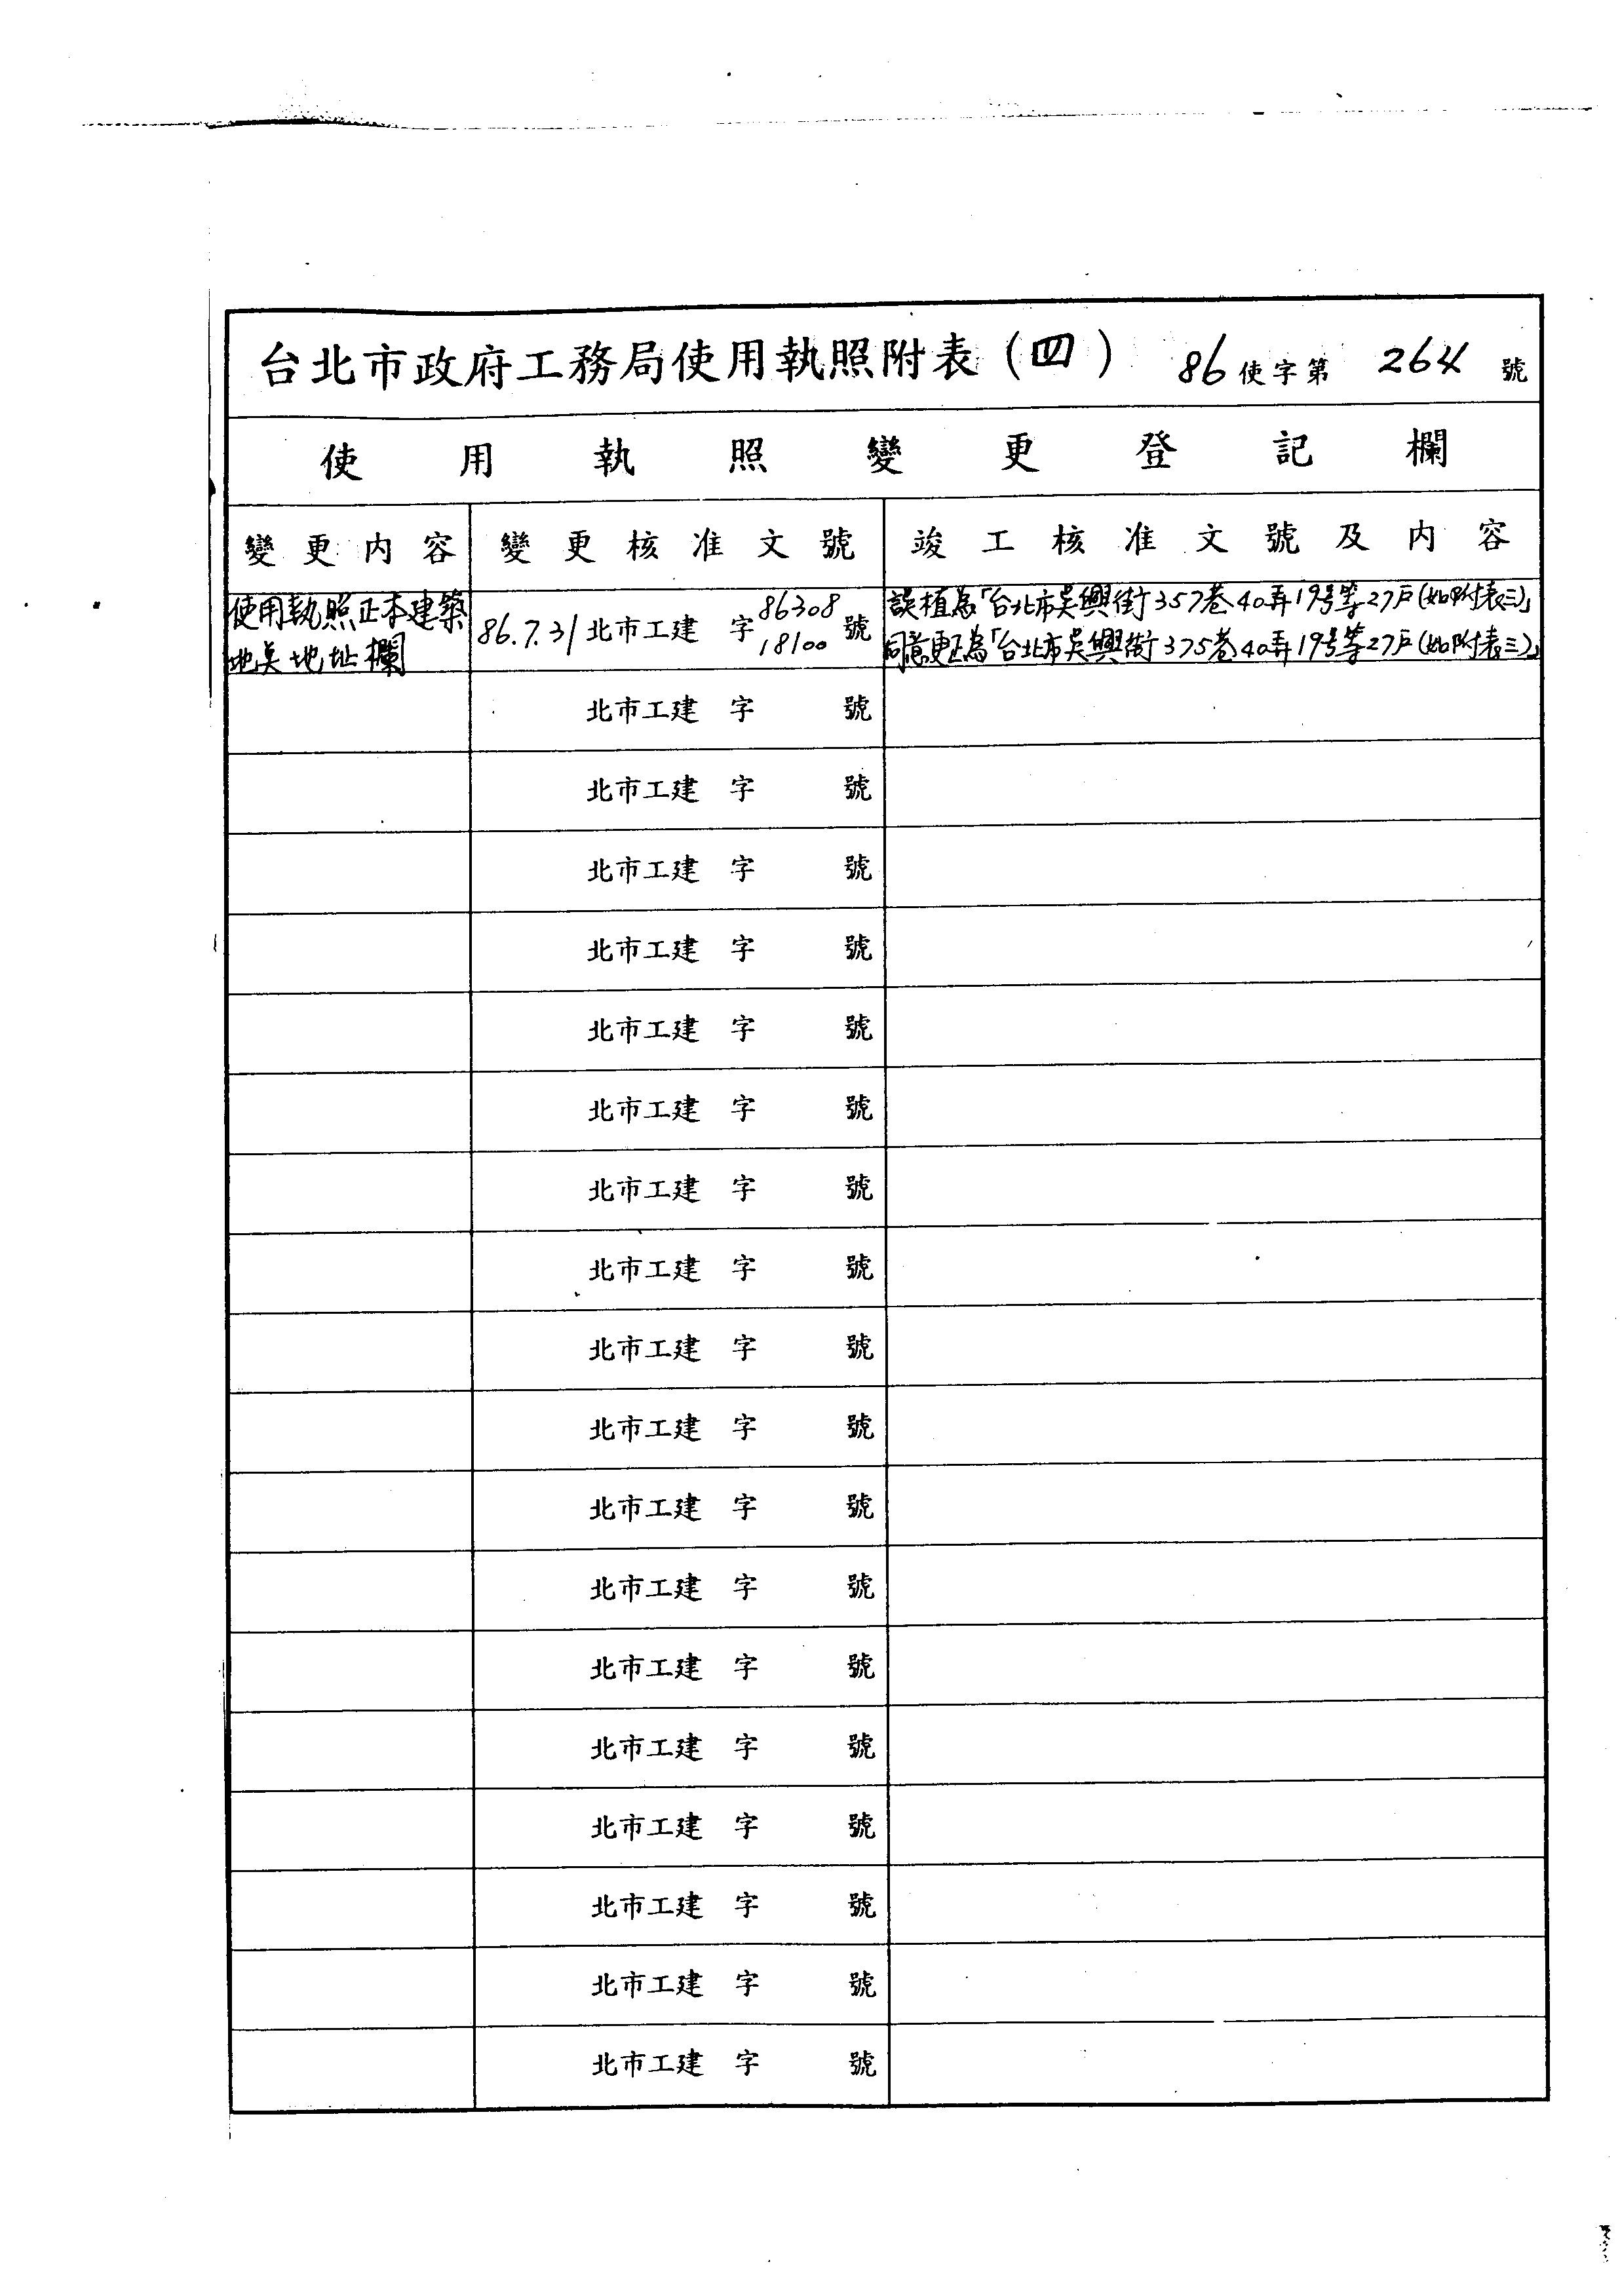 台北市政府工務局使用執照附表(四) 86使字第 264 號
使用執照變更登記欄
變更內容 變更核准文號 竣工核准文號及內容
使用執照正本建築
地點地址欄
86.7.31 北市工建 字 8630818100 號
誤植為「台北市吳興街357巷40弄19號等27戶(如附表三)」
同意更正為「台北市吳興街375巷40弄19號等27戶(如附表三)」
北市工建 字 號
北市工建 字 號
北市工建 字 號
北市工建 字 號
北市工建 字 號
北市工建 字 號
北市工建 字 號
北市工建 字 號
北市工建 字 號
北市工建 字 號
北市工建 字 號
北市工建 字 號
北市工建 字 號
北市工建 字 號
北市工建 字 號
北市工建 字 號
北市工建 字 號
北市工建 字 號